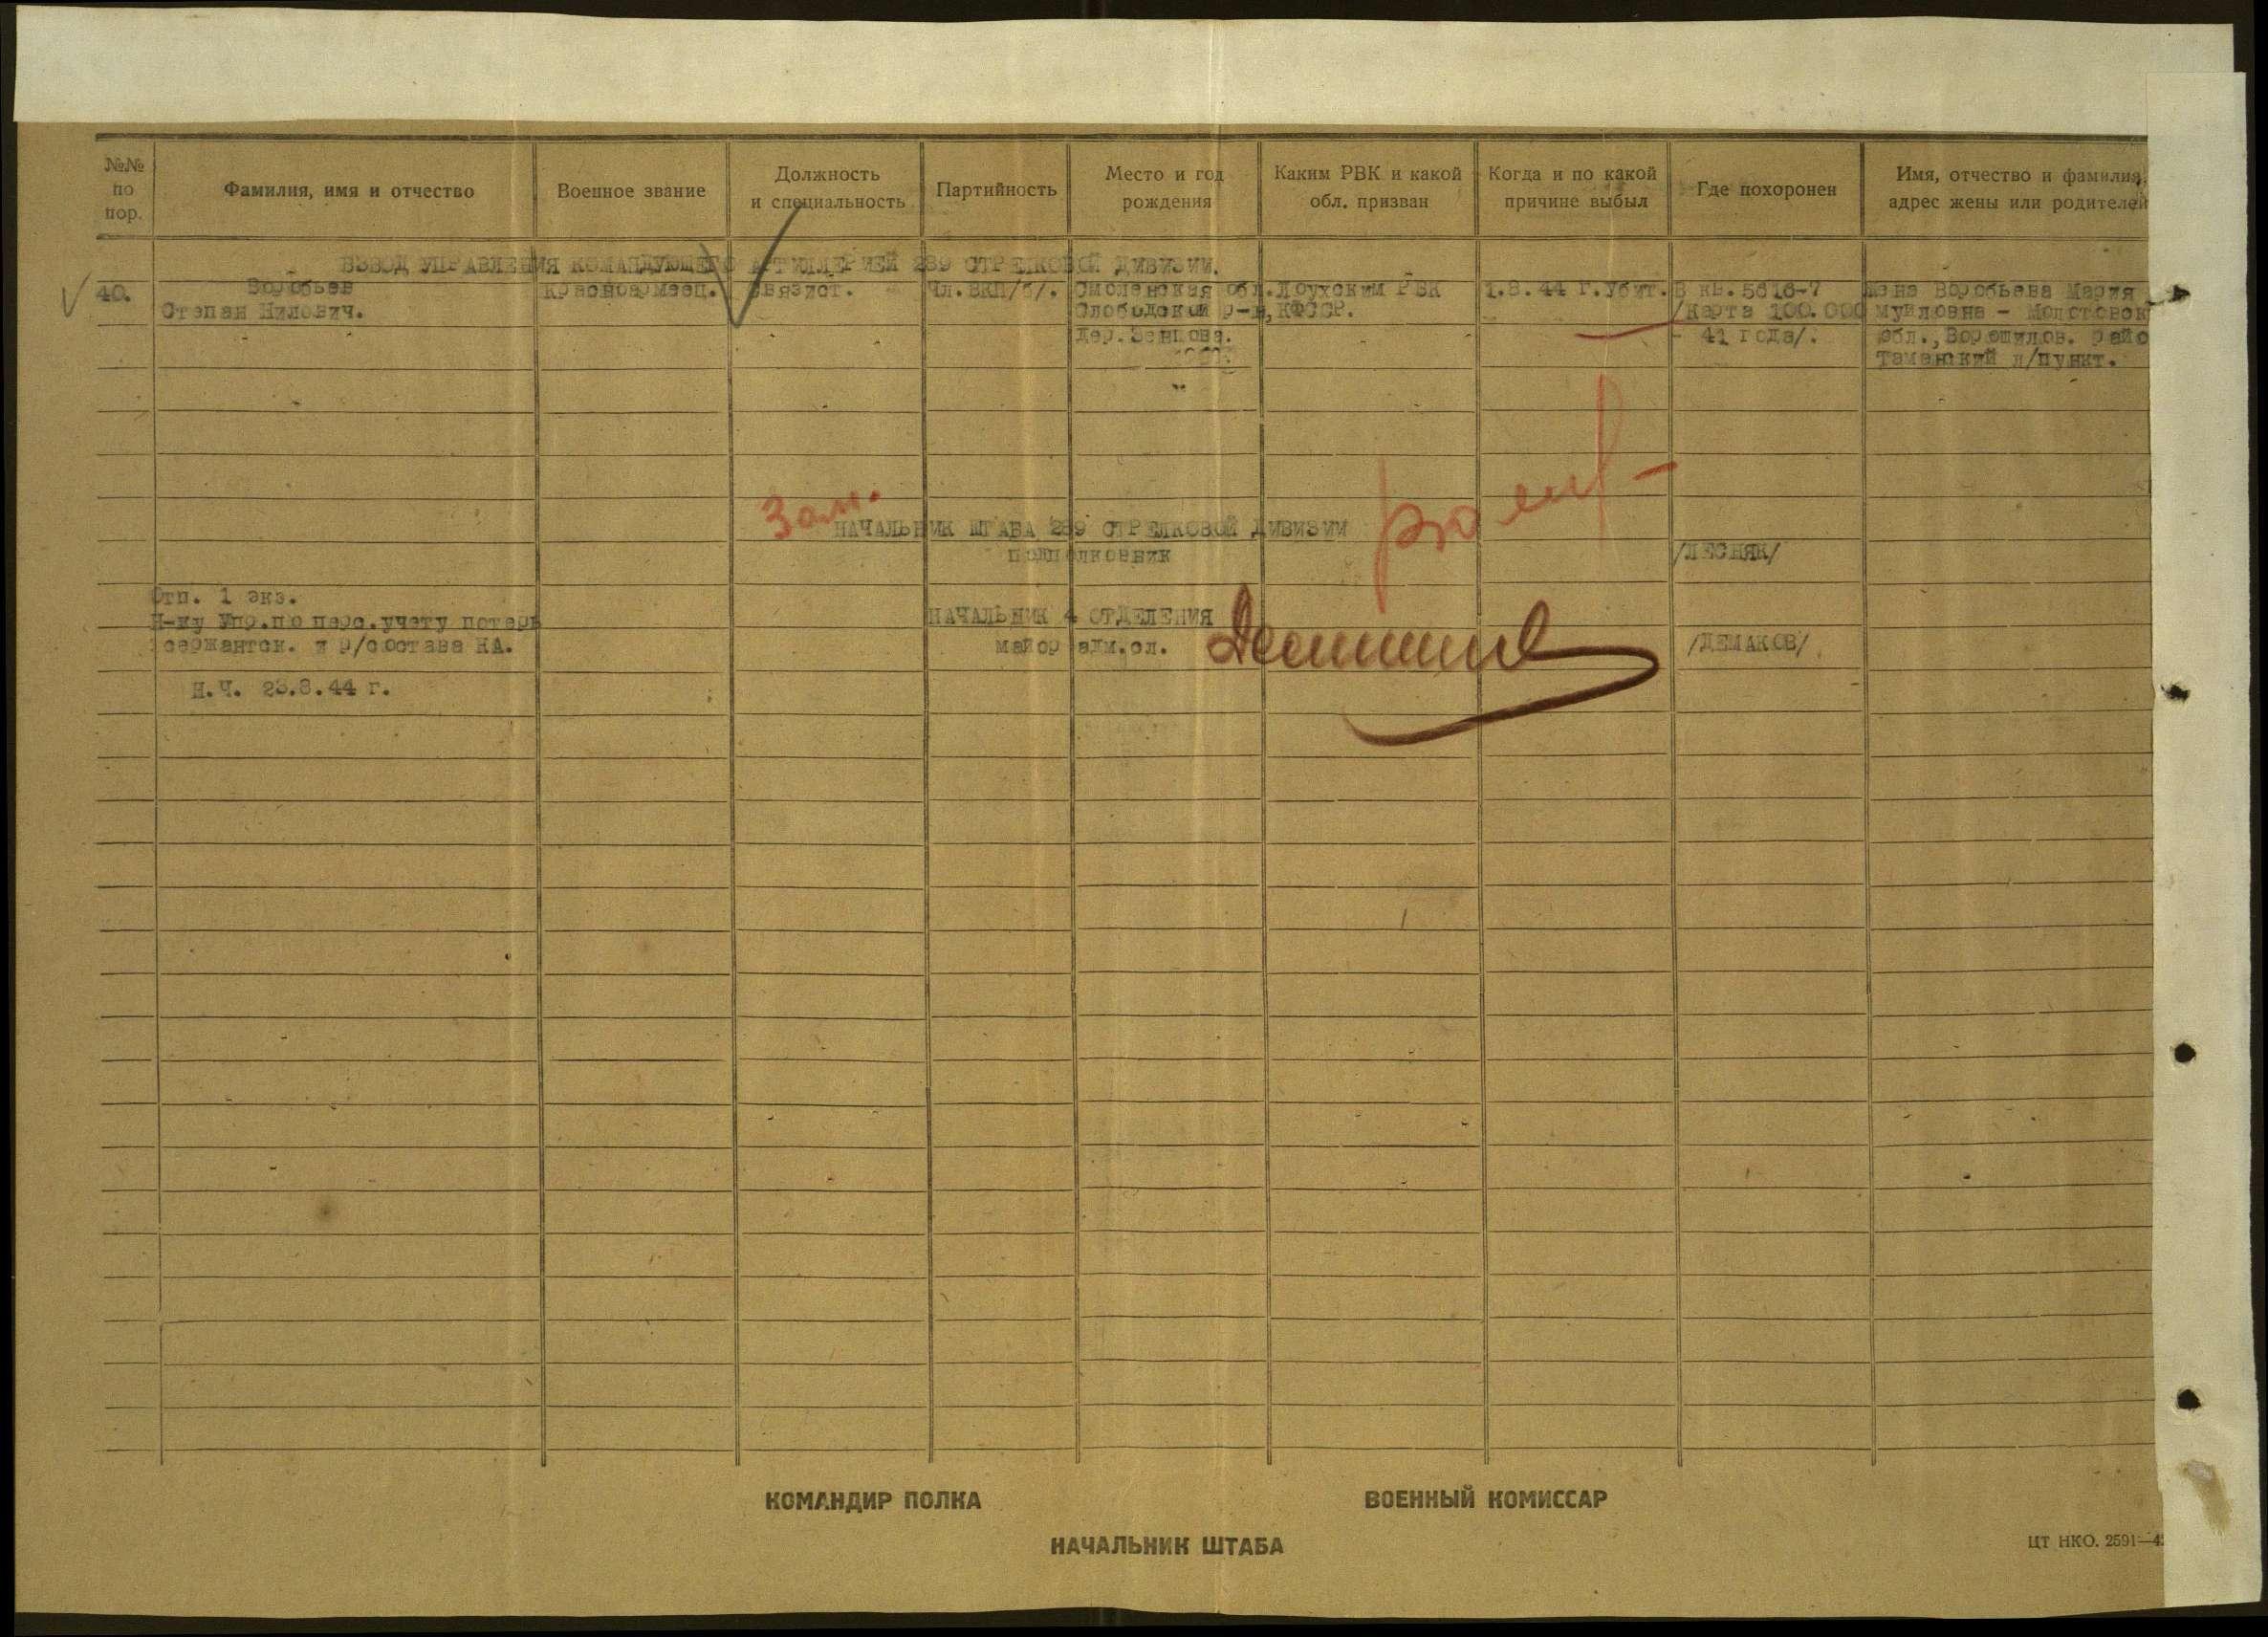 №№ по пор.
Фамилия, имя и отчество
Военное звание
Должность и специальность
Партийность
Место и год рождения
Каким РВК и какой обл. призван
Когда и по какой причине выбыл
Где похоронен
Имя, отчество и фамилия, адрес жены или родителей
ВЗВОД УПРАВЛЕНИЯ КОМАНДУЮЩЕГО АРТИЛЛЕРИЕЙ 289 СТРЕЛКОВОЙ ДИВИЗИИ.
40.
Воробьев
Степан Нилович.
красноармеец.
связист.
Чл.ВКП/б/.
Смоленская обл.
Слободской р-н,
дер.
Лоухским РВК
КФССР.
1.8.44 г.убит.
В кв.5616-7
/карта 100.000
- 41 года/.
Жена Воробьева Мария
муиловна - Молотовск
обл., Ворошилов. райо
Таманский л/пункт.
Зам.
НАЧАЛЬНИК ШТАБА 289 СТРЕЛКОВОЙ ДИВИЗИИ
подполковник
/ЛЕСНЯК/
Отп. 1 экз.
Н-ку Упр.по перс.учету потерь
сержантск. и р/состава КА.
Н.Ч. 23.8.44 г.
НАЧАЛЬНИК 4 ОТДЕЛЕНИЯ
майор адм.сл.
/ДЕМАКОВ/
КОМАНДИР ПОЛКА
ВОЕННЫЙ КОМИССАР
НАЧАЛЬНИК ШТАБА
ЦТ НКО. 2591—4